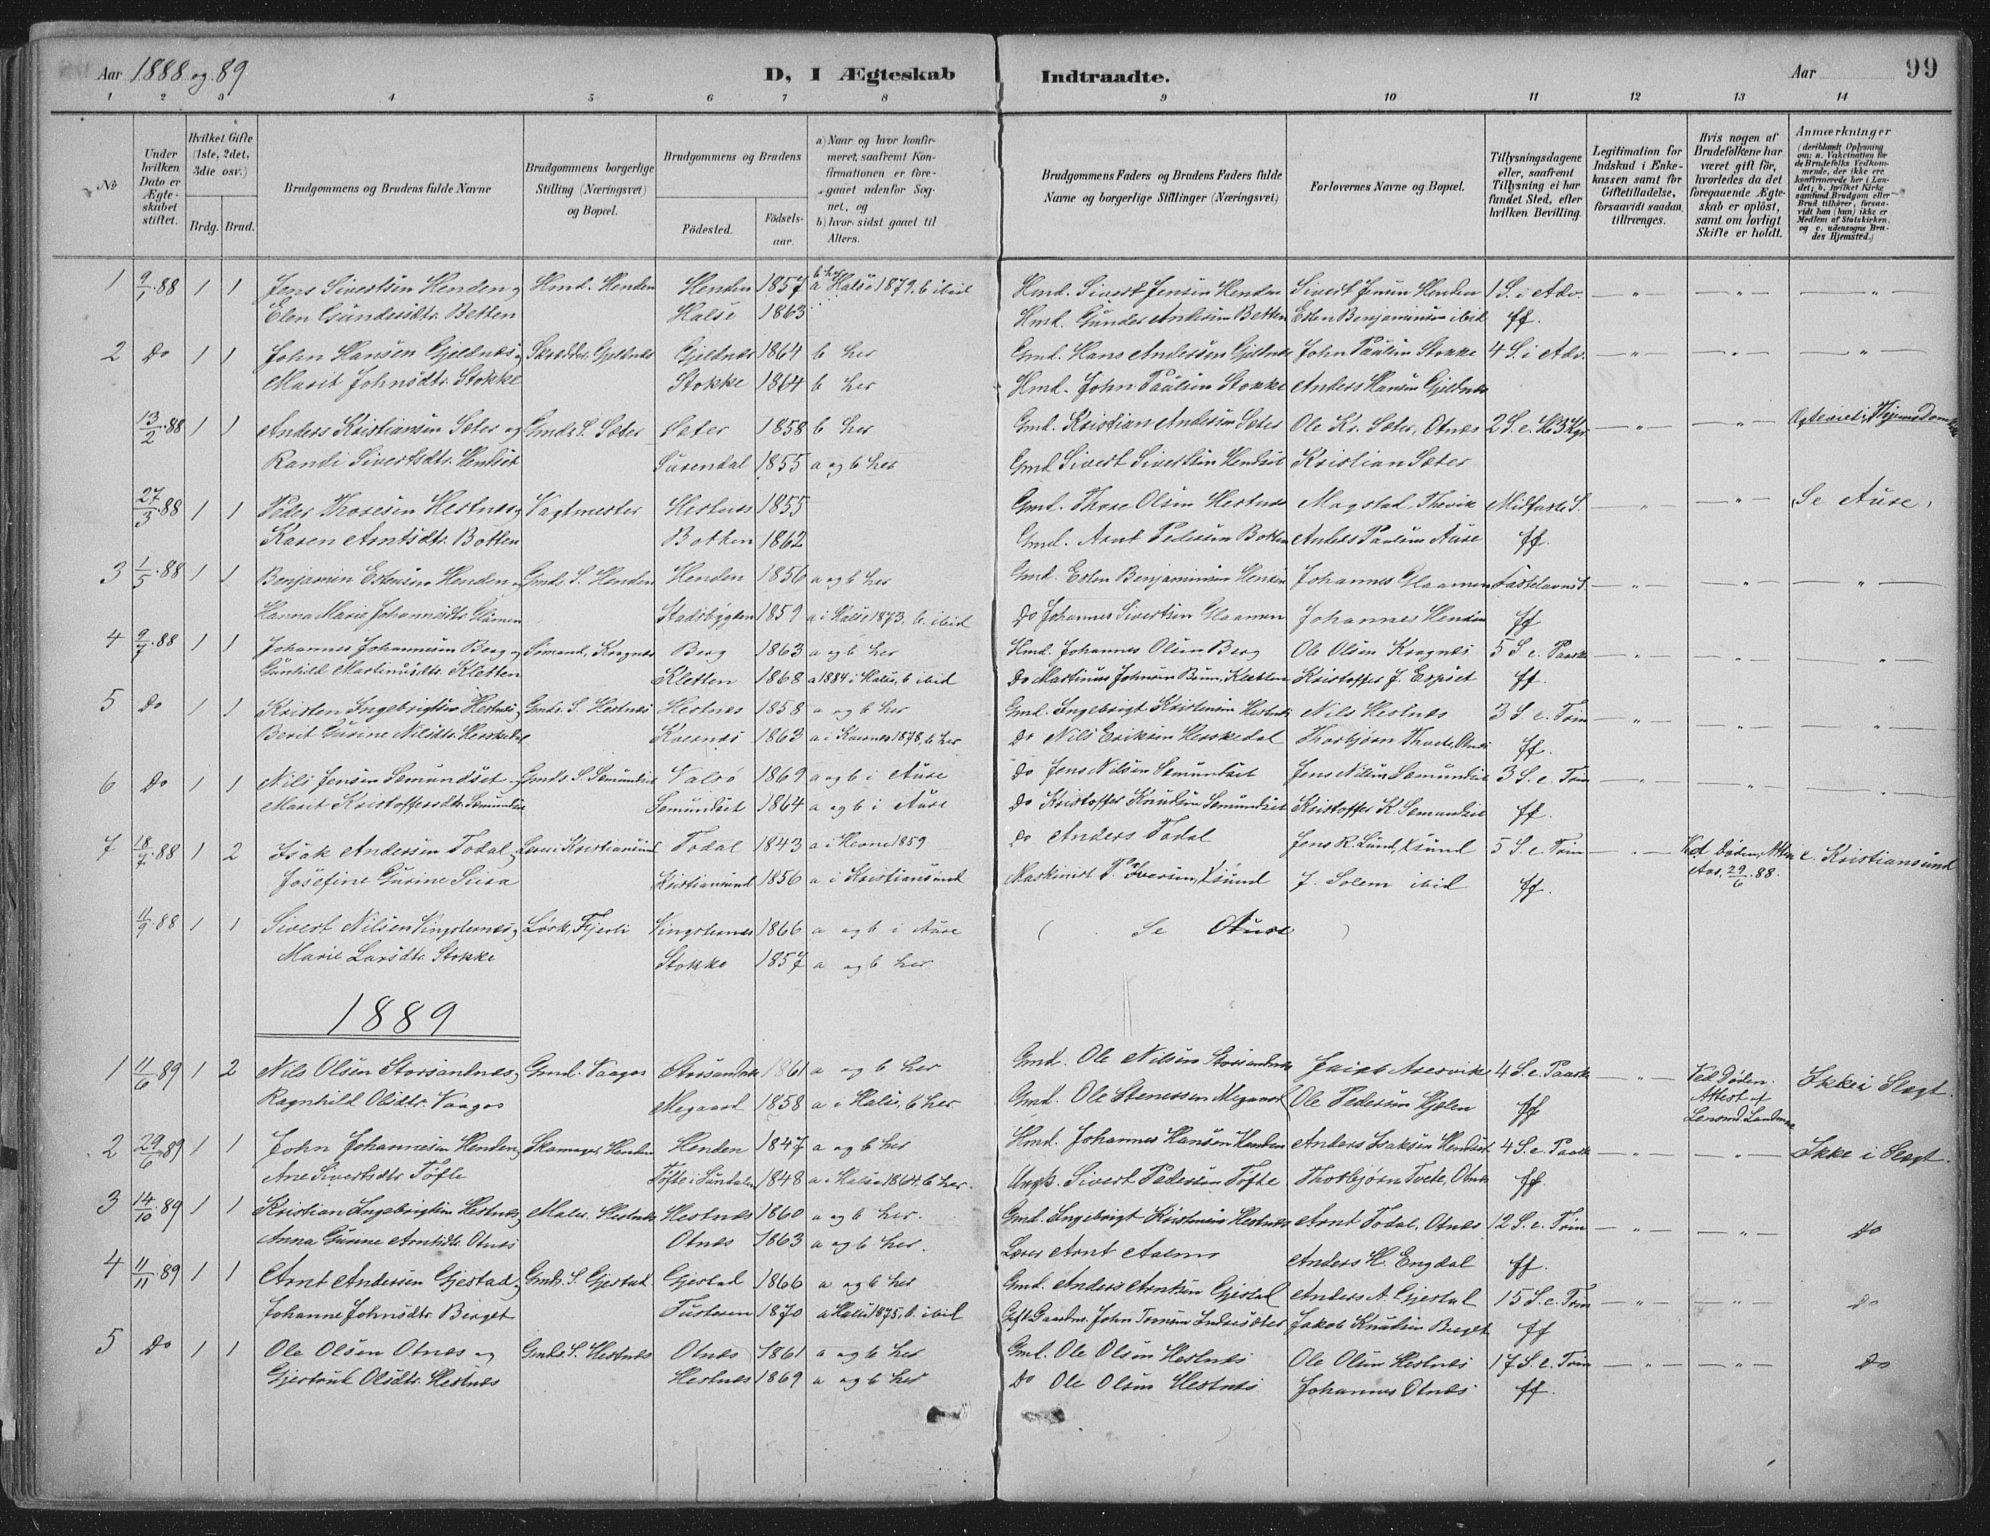 Aar 1888 og 89
D, I Ægteskab Indtraadte.
Aar 99
1 2 3 4 5 6 7 8 9 10 11 12 13 14
No
Under hvilken Dato er Ægteskabet stiftet.
Hvilket Gifte (1ste, 2det, 3die osv.)
Brdg. Brud.
Brudgommens og Brudens fulde Navne
Brudgommens borgerlige Stilling (Næringsvei) og Bopæl.
Brudgommens og Brudens
Födested. Födselsaar.
a) Naar og hvor konfirmeret, saafremt Konfirmationen er foregaaet udenfor Sognet, og
b) hvor sidst gaaet til Alters.
Brudgommens Faders og Brudens Faders fulde Navne og borgerlige Stillinger (Næringsvei)
Forlovernes Navne og Bopæl.
Tillysningsdagene eller, saafremt Tillysning ei har fundet Sted, efter hvilken Bevilling.
Legitimation for Indskud i Enkekassen samt for Giftetilladelse, forsaavidt saadan tiltrænges.
Hvis nogen af Brudefolkene har været gift för, hvorledes da det foregaaende Ægteskab er oplöst, samt om lovligt Skifte er holdt.
Anmærkninger
(deriblandt Oplysning om: a. Vakcination for de Brudefolks Vedkommende, der ikke ere konfirmerede her i Landet; b. hvilket Kirkesamfund Brudgom eller Brud tilhörer, forsaavidt han (hun) ikke er Medlem af Statskirken, og c. udensogns Brudes Hjemsted.)
1 9/1 88 1 1 Jens Sivertsen Henden og Hmd. Henden Henden 1857 b her Hmd. Sivert Jensen Henden Sivert Jensen Henden 1 S. i Adv.
Elen Gundersdtr. Betten Halse 1863 a Halse 1879. b ibid Hmd. Gunder Andersen Betten Esten Benjaminsen ibid ff.
2 Do 1 1 John Hansen Gjeldnes og Skrædder, Gjeldnes Gjeldnes 1864 b her Gmd. Hans Andersen Gjeldnes John Paulsen Stokke 4 S. i Adv.
Marit Johnsdtr. Stokke Stokke 1864 b her Hmd. John Paulsen Stokke Anders Hansen Gjeldnes
13/2 88 1 1 Anders Kristiansen Sæter og Gmds. S. Sæter Sæter 1858 b her Gmd. Kristian Andersen Sæter Ole Kr. Sæter, Otnes 2 S. e. H. 3 Kgr
Randi Sivertsdtr. Hendset Surendal 1855 a og b her Gmd Sivert Sivertsen Hendset Kristian Sæter
27/3 88 1 1 Peder Thoresen Hestnes og Vagtmester Hestnes 1855 Gmd. Thore Olsen Hestnes Magstad, Thevik Midfaste S. Se Aure.
Karen Arntsdtr. Botten Botten 1862 Gmd. Arnt Pedersen Botten Anders Paulsen Aure ff.
3 1/5 88 1 1 Benjamin Estensen Henden og Gmds. S. Henden Henden 1856 a og b her Gmd. Esten Benjaminsen Henden Johannes Glaamen Fastelavns S.
Hanna Marie Johannesdtr. Glåmen Stadsbygden 1859 a i Halse 1873. b. ibid Do Johannes Sivertsen Glaamen Johannes Henden ff
4 9/7 88 1 1 Johannes Johannesen Berg og Sömand, Korgnes Berg 1863 a og b her Hmd. Johannes Olsen Berg Ole Olsen Korgnes 5 S. e. Paaske
Gunhild Martinusdtr. Kletten Kletten 1868 a 1884 i Halse, b ibid Do Martinus Johnsen Bun, Kletten Kristoffer J. Espset ff.
5 Do 1 1 Kristen Ingebrigtsen Hestnes og Gmds. S. Hestnes Hestnes 1858 a og b her Gmd. Ingebrigt Kristensen Hestnes Nils Hestnes 3 S. e. Trin
Berit Gurine Nilsdtr. Herskedal Kvernes 1863 a i Kvernes 1878, b her Do Nils Eriksen Herskedal Thorbjørn Tvete, Otnes ff.
6 Do 1 1 Nils Jensen Semundset og Gmds. S. Semundset Valsö 1869 a og b i Aure Do Jens Nilsen Semundset Jens Nilsen Semundset 3 S. e. Trin
Marit Kristoffersdtr. Semundset Semundset 1864 a og b i Aure Do Kristoffer Knudsen Semundset Kristoffer K. Semundset ff.
7 18/7 88 1 2 Isak Andersen Todal og Lærer i Kristiansund Todal 1843 a i Hevne 1859 Do Anders Todal Jens R. Lund, Xsund 5 S. e. Trin Ved Døden, Attest c. Kristiansund
Josefine Gurine Kristiansund 1856 a i Kristiansund Maskinist P. Iversen, Xsund J. Solem ibid ff. 29/6 88.
11/9 88 1 1 Sivert Nilsen Vingsternes og Løsk, Fjerli Vingsternes 1866 a og b i Aure ( Se Aure )
Marie Larsdtr. Stokke Stokke 1857 a og b her
1889
1 11/6 89 1 2 Nils Olsen Storsandnes og Gmd. Vaagos Storsandnes 1861 a og b her Gmd. Ole Nilsen Storsandnes Jakob Aresvik 4 S. e. Paaske Ved Døden. Ikke i Slegt.
Ragnhild Olsdtr. Vaagos Megaard 1858 a i Halse, b her. Gmd. Ole Stenersen Megaard Ole Pedersen Hjelen ff Attest af Lensmd. Landmoe
2 29/6 89 1 1 John Johannesen Henden og Skomager, Henden Henden 1847 a og b her Hmd. Johannes Hansen Henden Anders Isaksen Hendset 4 S. e. Paaske Ikke i Slegt.
Ane Sivertsdtr. Tøfte Tøfte i Sundalen 1848 a i Halse 1864 b her. Ungk. Sivert Pedersen Tøfte Thorbjørn Tvete, Otnes ff
3 14/10 89 1 1 Kristian Ingebrigtsen Hestnes og Maler, Hestnes Hestnes 1860 a og b her. Gmd. Ingebrigt Kristensen Hestnes Arnt Todal, Otnes 12 S. e. Trin Do
Anna Gurine Arntsdtr. Otnes Otnes 1863 a og b her. Lærer Arnt Aalmo Anders H. Engdal ff.
4 11/11 89 1 1 Arnt Andersen Gjestad og Gmds. S. Gjestad Gjestad 1866 a og b her Gmd. Anders Arntsen Gjestad Anders A. Gjestad 15 S. e. Trin Do
Johanne Johnsdtr. Berget Tusteren 1870 a Halse 1875, b. ibid Gift Gaardm. John Tornesen Jakob Knutsen Berget ff
5 Do 1 1 Ole Olsen Otnes og Gmds. S. Hestnes Otnes 1861 a og b her Gmd. Ole Olsen Hestnes Ole Olsen Hestnes 17 S. e. Trin Do
Gjertrud Olsdtr. Hestnes Hestnes 1869 a og b her Do Ole Olsen Hestnes Johannes Otnes ff.